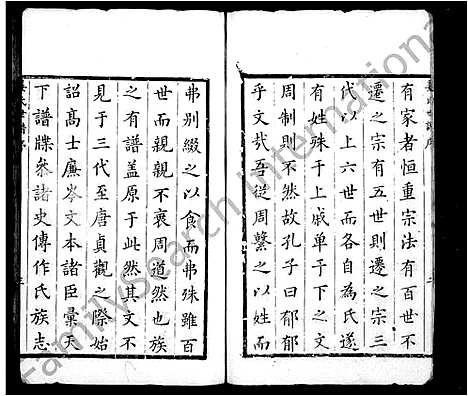 有家者恒重宗法有百世不
遷之宗有五世則遷之宗三
代以上六世而各自為氏遂
有姓殊于上戚單于下之文
周制則不然故孔子曰郁郁
乎文哉吾從周繫之以姓而
弗別綴之以食而弗殊雖百
世而親親不衰周道然也族
之有譜盖原于此然其文不
見于三代至唐貞觀之際始
詔髙士廉岑文本諸臣彙天
下譜牒叅諸史傳作氏族志
FamilySearch International